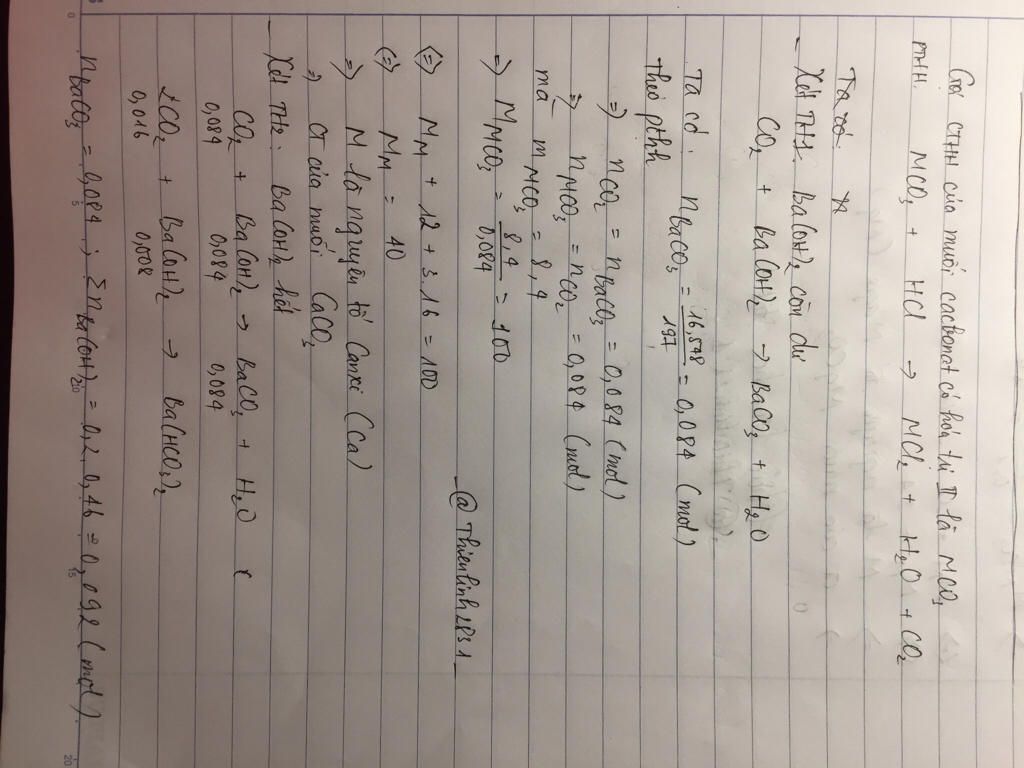 Gọi CTHH của muối cacbonat có hóa trị II là MCO₃
PTHH. MCO₃ + HCl → MCl₂ + H₂O + CO₂
Ta có
- Xét TH1. Ba(OH)₂ còn dư
CO₂ + Ba(OH)₂ → BaCO₃ + H₂O
Ta có. nBaCO₃ = 16.548 / 197 = 0,084 (mol)
Theo ptph
=) nCO₂ = nBaCO₃ = 0,084 (mol)
=) nMCO₃ = nCO₂ = 0,084 (mol)
mà mMCO₃ = 8,4
=) MMCO₃ = 8,4 / 0,084 = 100
(=) MM + 12 + 3.16 = 100
(=) MM = 40
=) M là nguyên tố Canxi (Ca)
=) CT của muối CaCO₃
_@Thienlinh2831_
- Xét TH2: Ba(OH)₂ hết
CO₂ + Ba(OH)₂ → BaCO₃ + H₂O
0,084 0,084 0,084
2CO₂ + Ba(OH)₂ → Ba(HCO₃)₂
0,016 0,008
nBaCO₃ = 0,084 ; Σ nBa(OH)₂ = 0,2.0,46 = 0,092 (mol).
0 5 10 15 20